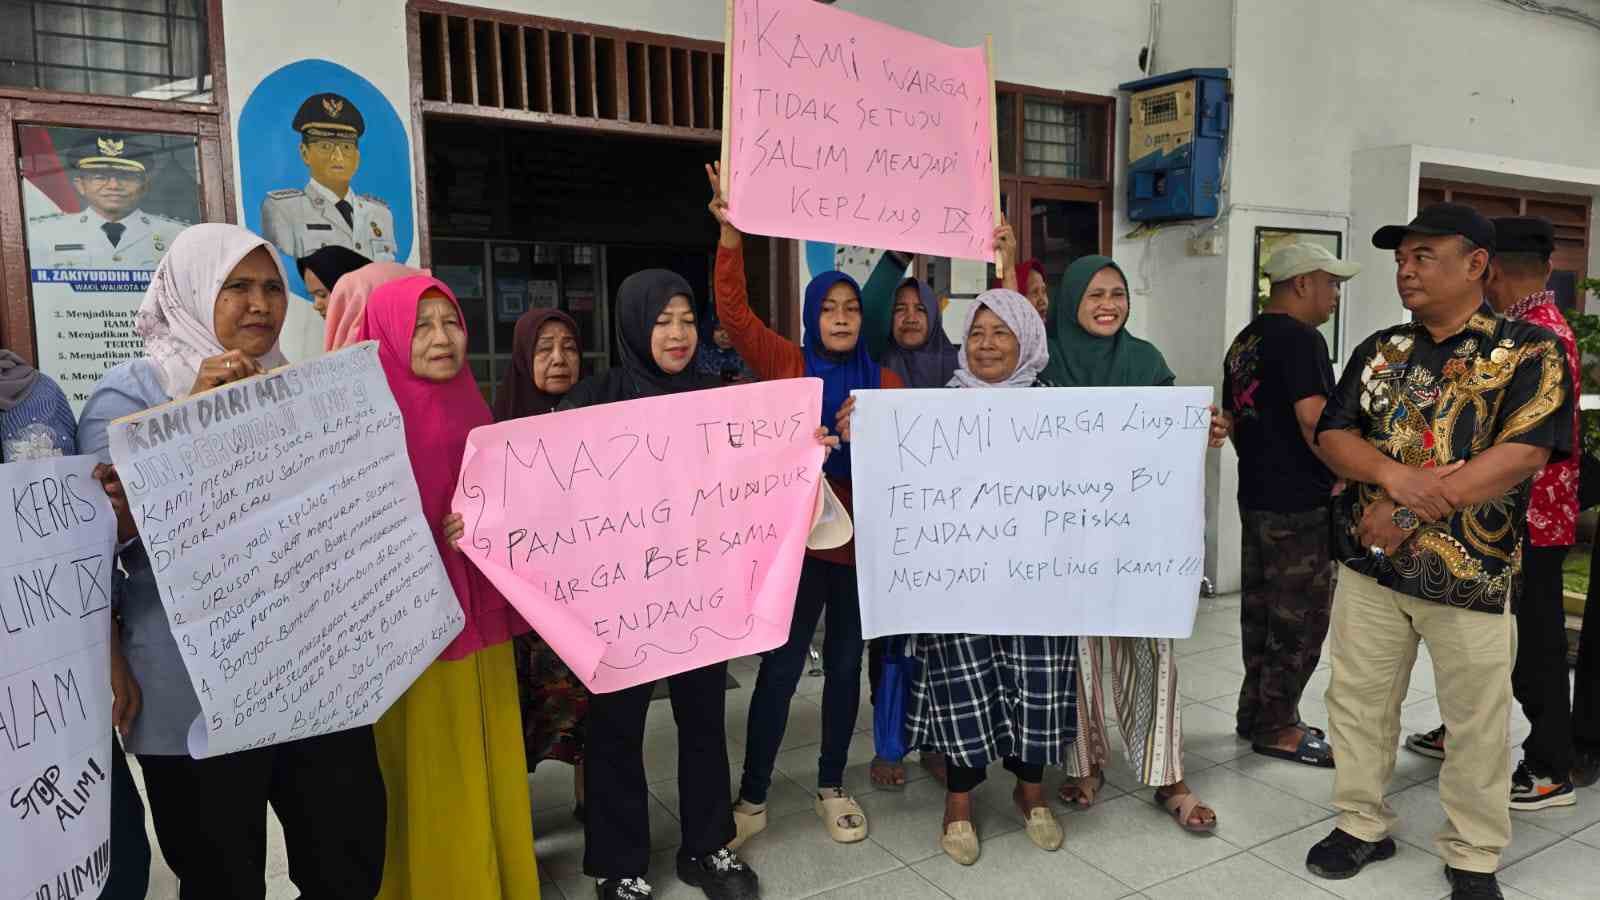 KAMI WARGA
TIDAK SETUJU
SALIM MENJADI
KEPLING IX !!!
H. ZAKIYUDDIN HAR
WAKIL WALIKOTA M
3. Menjadikan M
RAMA
4. Menjadikan M
TERTI
5. Menjadikan
6. Menja
KERAS
LINK IX
ALAM
STOP
ALIM!
ALIM!!!!
KAMI DARI MASYARAKAT
JLN. PERWIRA II LINK 9
KAMI MEWAKILI SUARA RAKYAT
Kami tidak mau Salim menjadi Kepling
DIKARNAKAN
1. Salim jadi Kepling tidak Amanah
2. URUSAN SURAT MENYURAT SUSAH
3. masalah Bantuan Buat masarakat
tidak pernah sampay ke masarakat
4. Banyak Bantuan Ditimbun di Rumah
5. Keluhan masarakat tidak pernah di
Dengar selamanya menjadi kepling kami
Bukan SALIM
SUARA RAKYAT Buat BUK
BUK Endang menjadi Kepling
MAJU TERUS
PANTANG MUNDUR
WARGA BERSAMA
ENDANG !
KAMI WARGA Ling IX
TETAP MENDUKUNG BU
ENDANG PRISKA
MENJADI KEPLING KAMI !!!